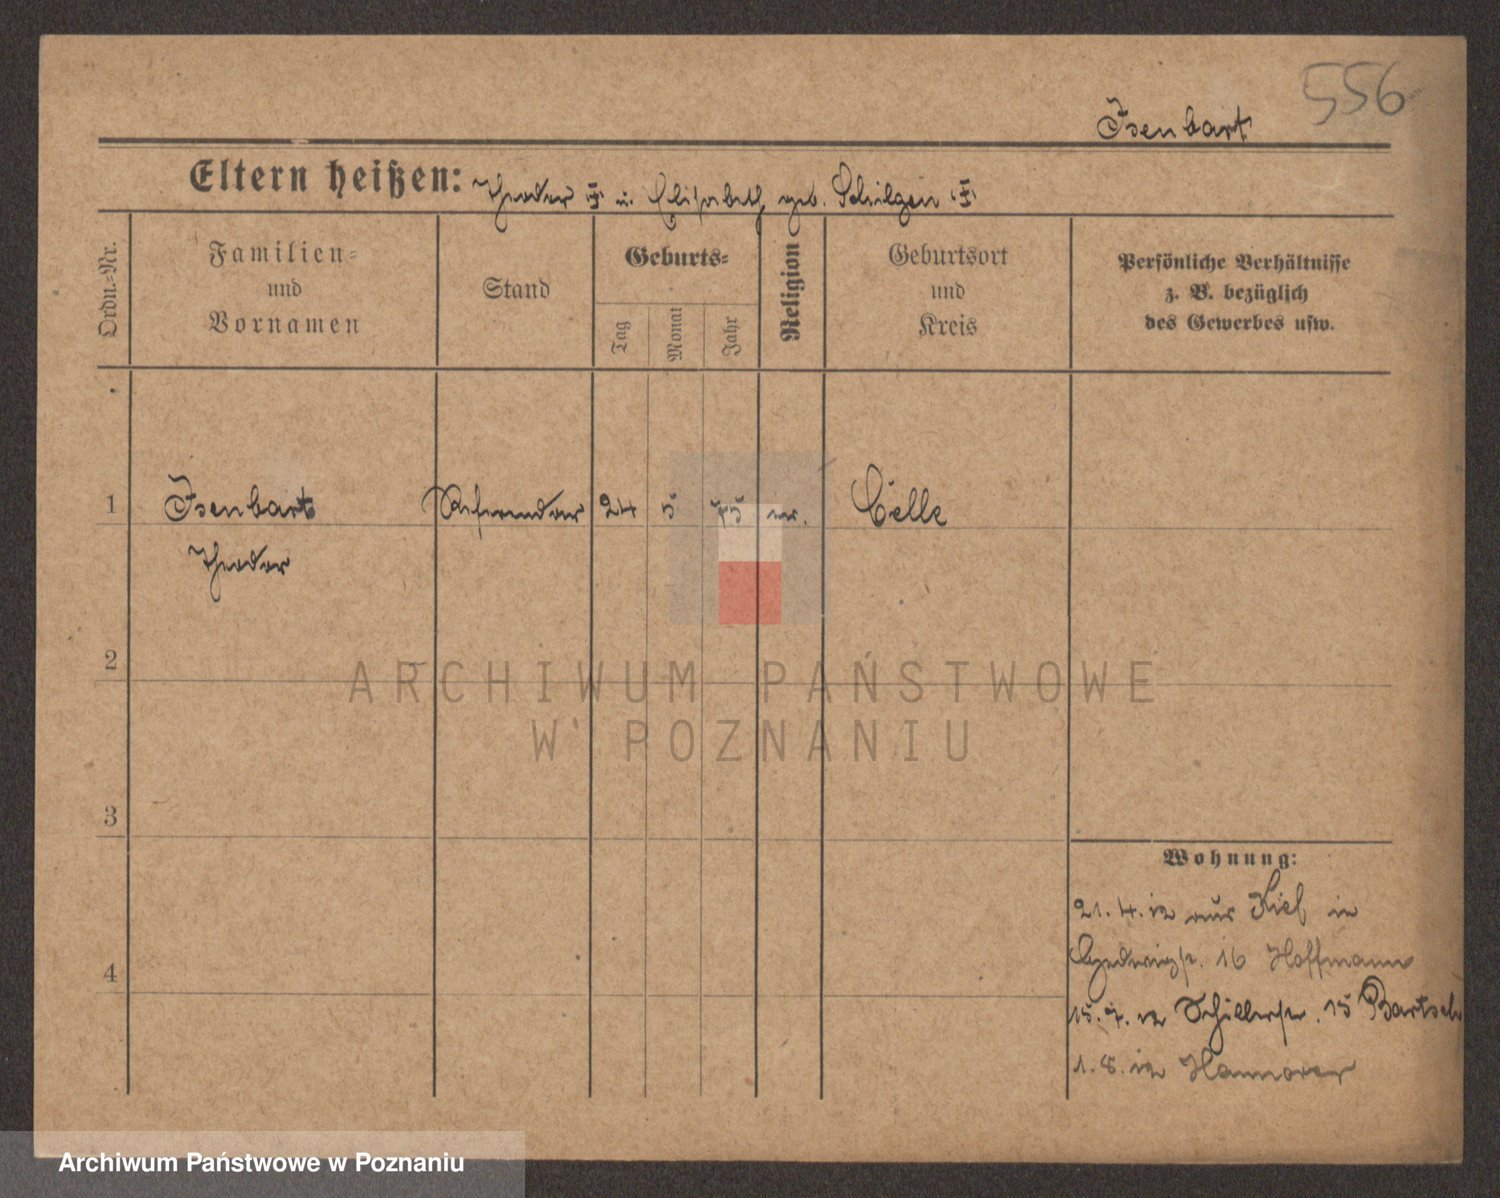 556
Isenbart
Eltern heißen: Theodor † u. Elisabeth geb. Schilgen †
Ordn.-Nr.
Familien-
und
Vornamen
Stand
Geburts-
Tag
Monat
Jahr
Religion
Geburtsort
und
Kreis
Persönliche Verhältnisse
z. B. bezüglich
des Gewerbes usw.
1 Isenbart Referendar 24 5 75 ev. Celle
Theodor
2
ARCHIWUM PAŃSTWOWE
W POZNANIU
3
Wohnung:
21. 4. 12 aus Kiel in
Hedwigstr. 16 Hoffmann
4
15. 7. 12 Schillerstr. 15 Bartsch
1. 8. 12 Hannover
Archiwum Państwowe w Poznaniu